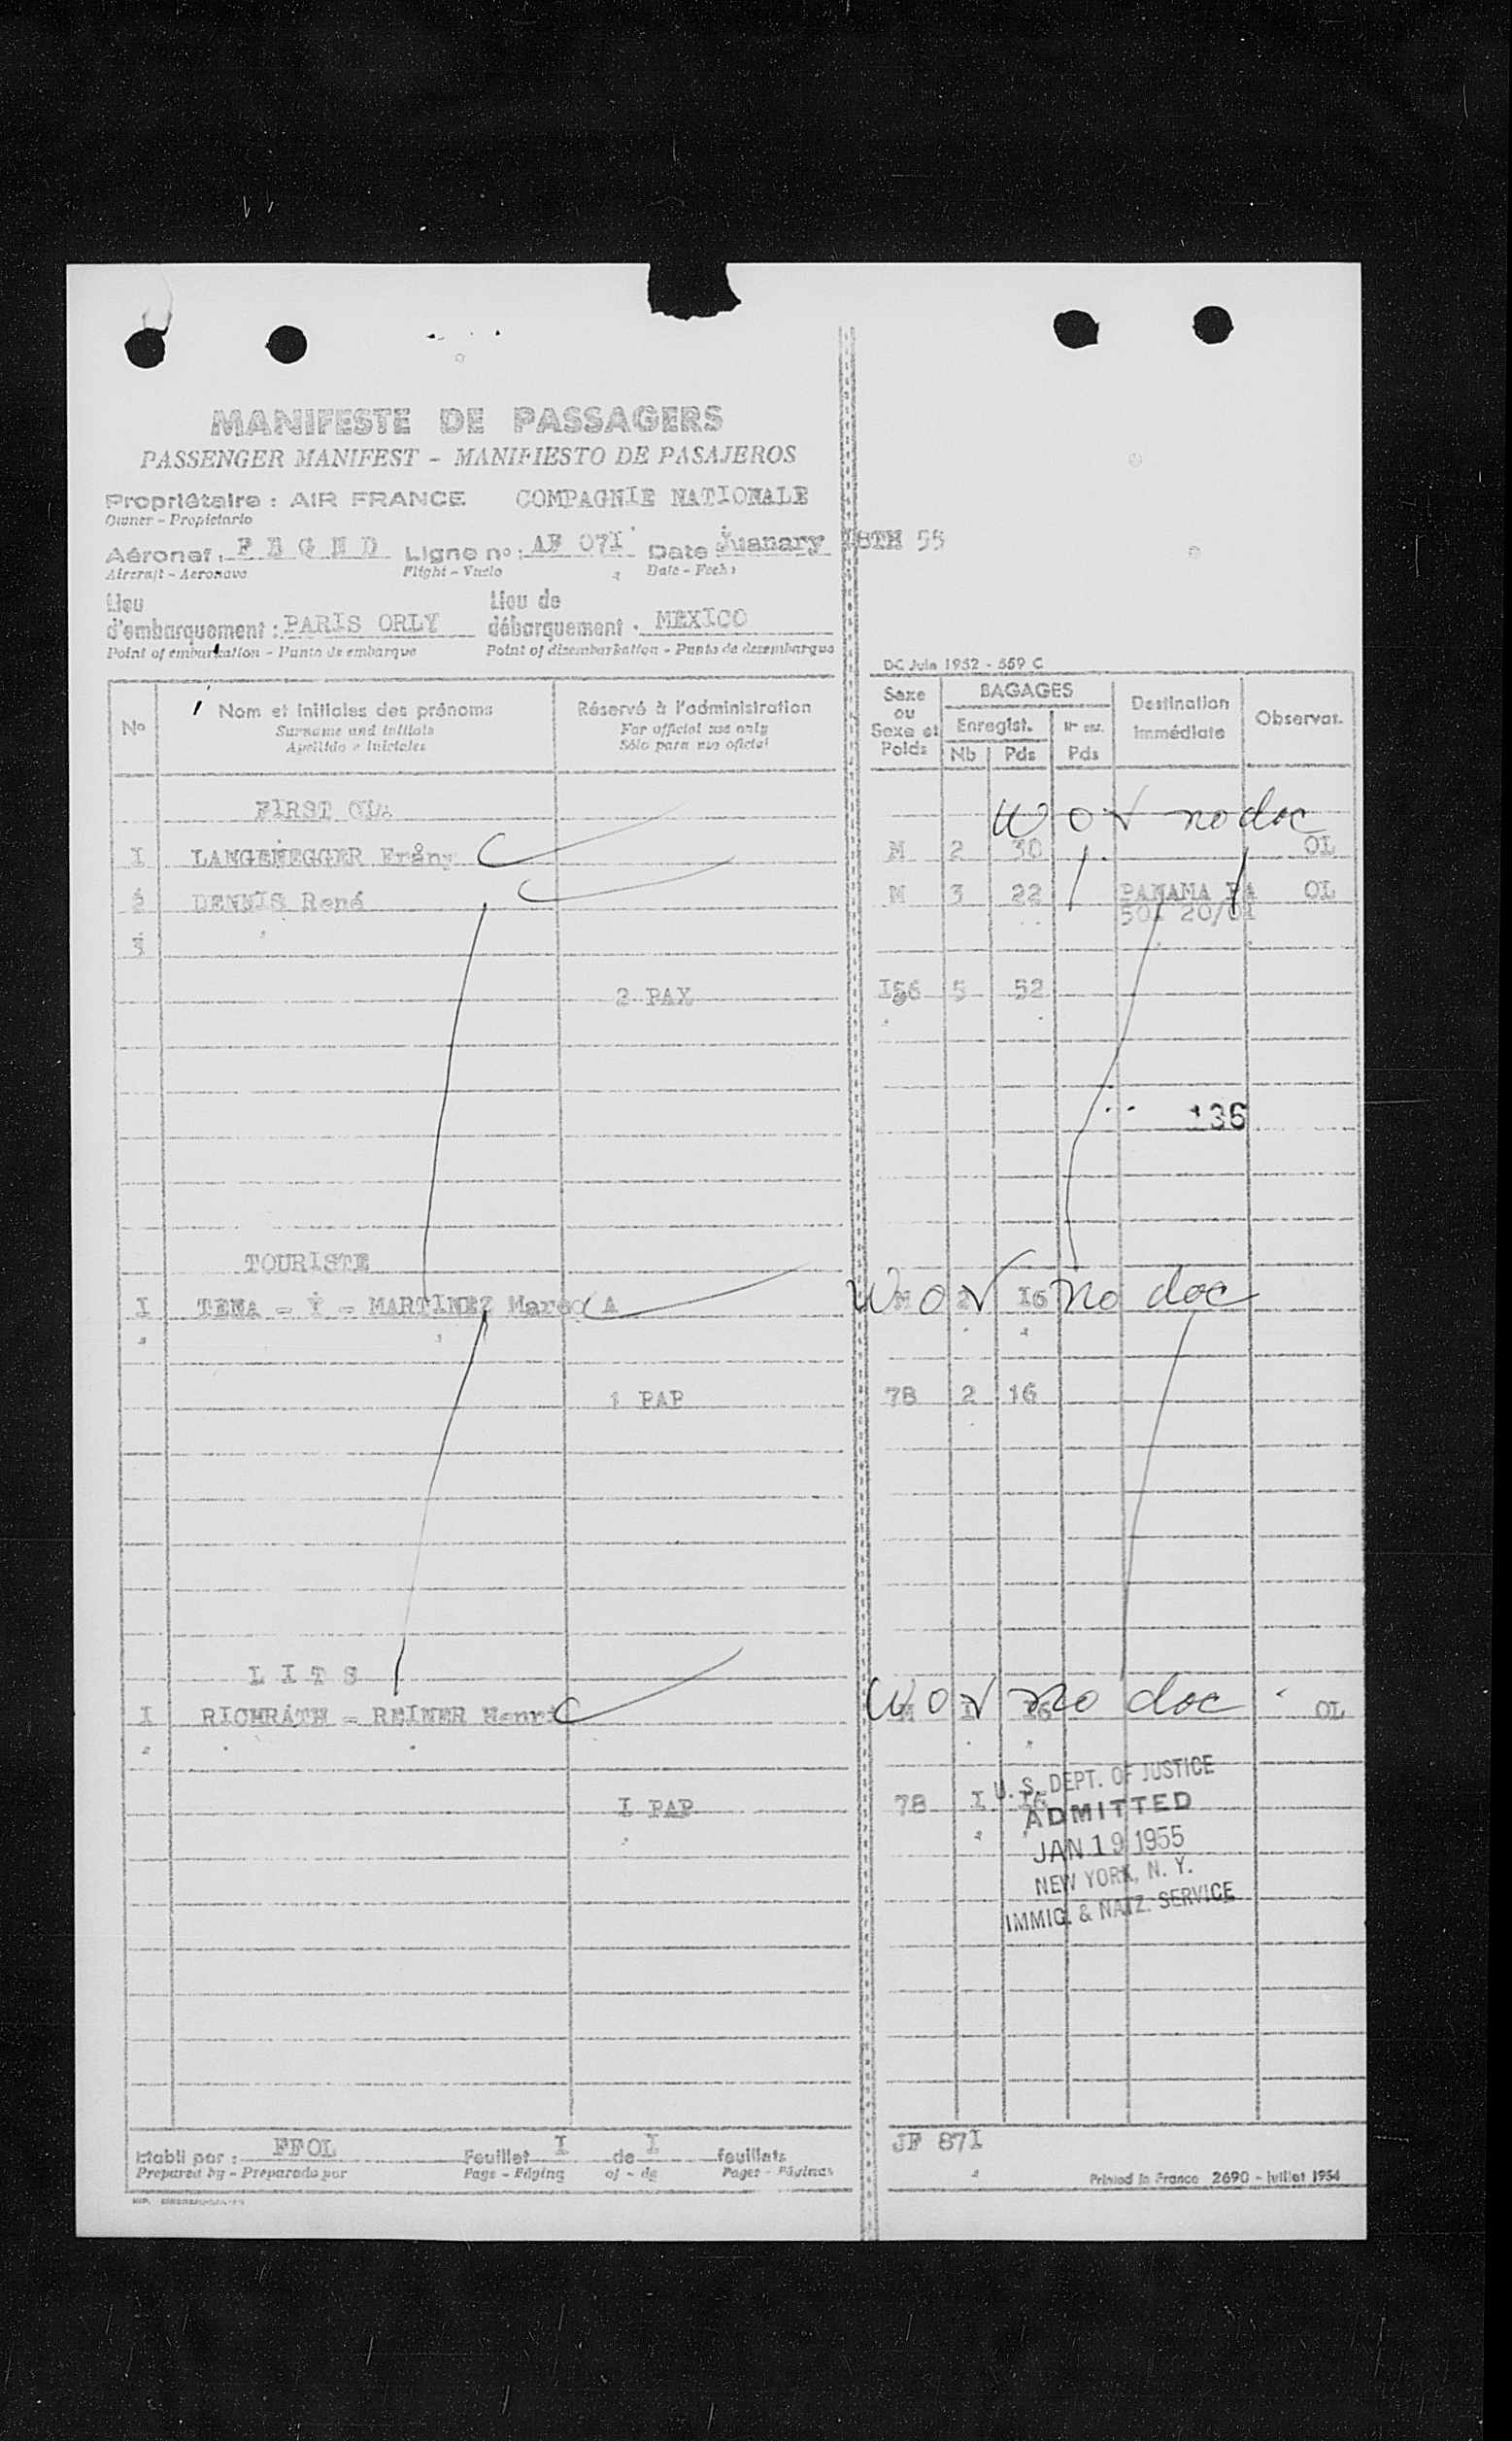 MANIFESTE DE PASSAGERS
PASSENGER MANIFEST - MANIFIESTO DE PASAJEROS
Propriétaire : AIR FRANCE COMPAGNIE NATIONALE
Owner - Propietario
Aéronef : F B G N D Ligne no : AF 071 Date Juanary 18TH 55
Aircraft - Aeronave Flight - Vuelo Date - Fecha
Lieu d'embarquement : PARIS ORLY Lieu de débarquement : MEXICO
Point of embarkation - Punto de embarque Point of disembarkation - Punto de desembarque
DC Juin 1952 - 559 C
No Nom et initiales des prénoms Réservé à l'administration Sexe ou Sexe et Poids BAGAGES Destination immédiate Observat.
Surname and initials For official use only Enregist.
Apellido e iniciales Sólo para uso oficial Nb Pds Pds
FIRST CLA W O V no doc
I LANGENEGGER M 2 30 OL
2 DENNIS René M 3 22 PANAMA PA OL
501 20/01
3
2 PAX 156 5 52
136
TOURISTE
I TENA - Y - MARTINEZ A M 2 16 W O V no doc
1 PAP 78 2 16
L I T S
I RICHRATH - REINER W O V no doc OL
I PAP 78 I 16
U. S. DEPT. OF JUSTICE
ADMITTED
JAN 19 1955
NEW YORK, N. Y.
IMMIG. & NATZ. SERVICE
Etabli par : FFOL Feuillet I de I feuillets JF 871
Prepared by - Preparado por Page - Páging of - de Pages - Páginas Printed in France 2690 - juillet 1954